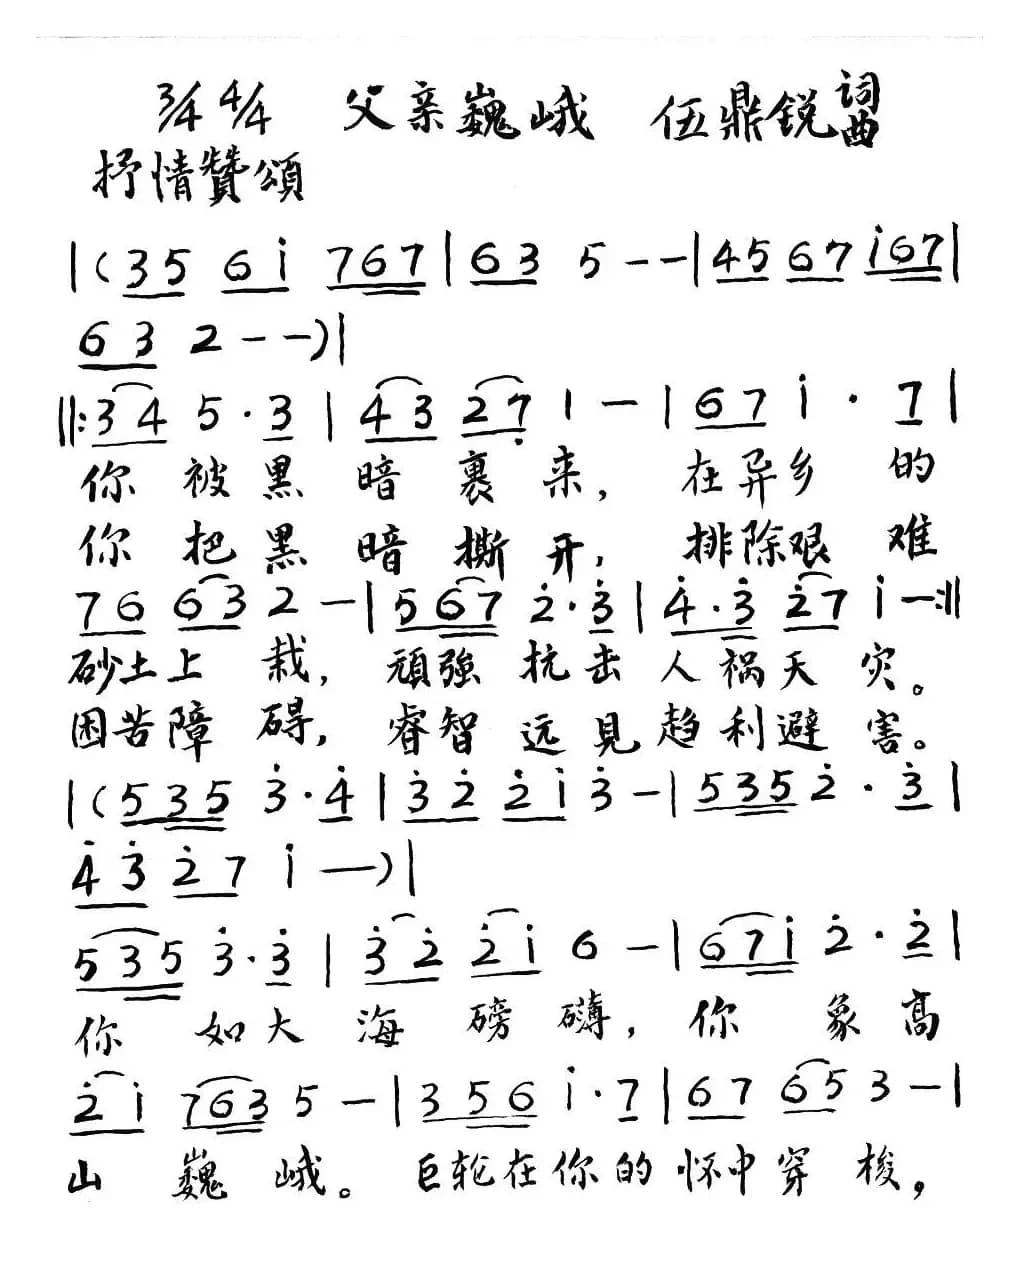 3/4 4/4 父亲巍峨 伍鼎锐 词曲
抒情赞頌
|(35 6i 767|63 5--|45 67 i67|
63 2--)|
||:34 5·3|43 27̣ 1-|67 i·7|
你被黑暗裹来，在异乡的
你把黑暗撕开，排除艰难
76 63 2-|567 2̇·3̇|4̇·3̇ 2̇7 i-:||
砂土上栽，頑強抗击人祸天灾。
困苦障碍，睿智远見趋利避害。
|(535 3̇·4̇|3̇2̇ 2̇i 3̇-|535 2̇·3̇|
4̇3̇ 2̇7 i-)|
535 3̇·3̇|3̇2̇ 2̇i 6-|67i 2̇·2̇|
你如大海磅礴，你象高
2̇i 763 5-|356 i·7|67 65 3-|
山巍峨。巨轮在你的怀中穿梭，